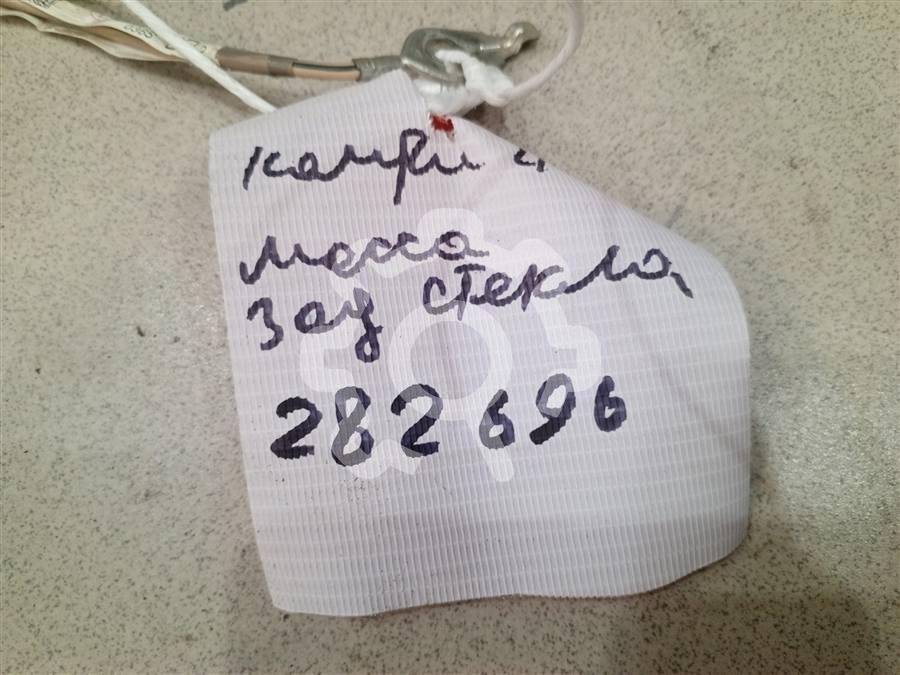 камри
масса
зад стекла
282696